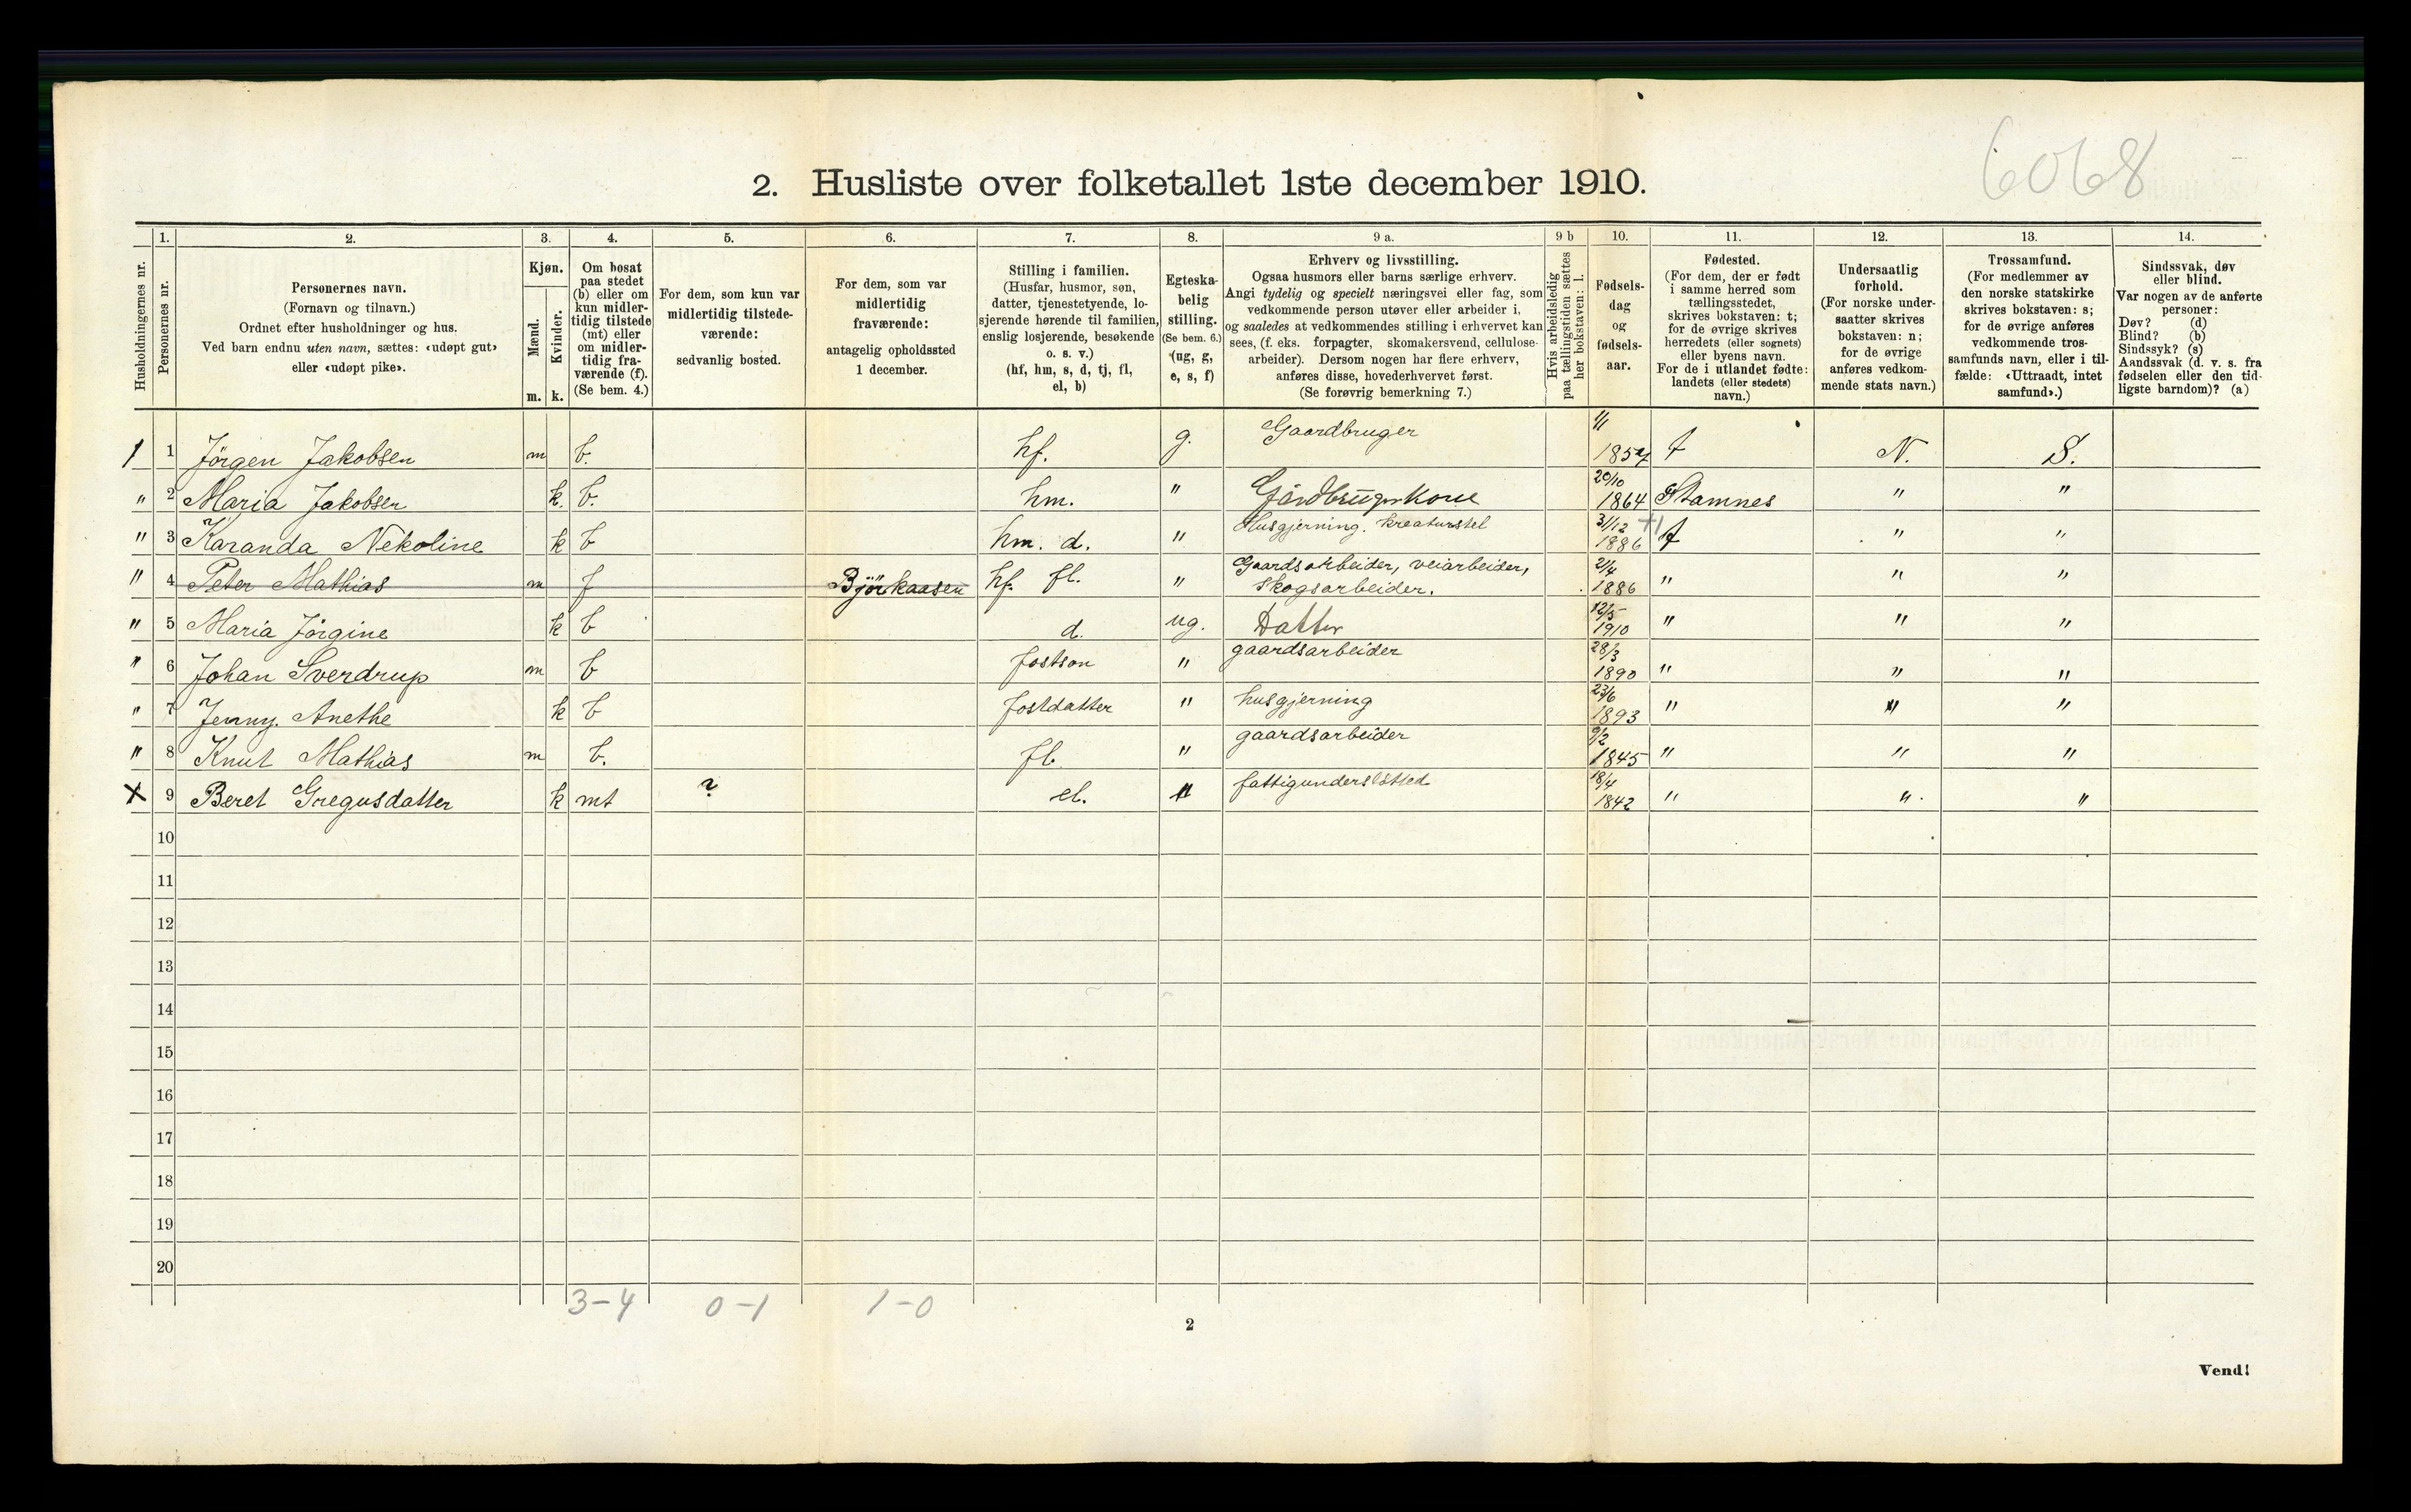 6068
2. Husliste over folketallet 1ste december 1910.
1. 2. 3. 4. 5. 6. 7. 8. 9 a. 9 b 10. 11. 12. 13. 14.
Husholdningernes nr.
Personernes nr.
Personernes navn.
(Fornavn og tilnavn.)
Ordnet efter husholdninger og hus.
Ved barn endnu uten navn, sættes: «udøpt gut»
eller «udøpt pike».
Kjøn.
Mænd.
Kvinder.
m. k.
Om bosat
paa stedet
(b) eller om
kun midler-
tidig tilstede
(mt) eller
om midler-
tidig fra-
værende (f).
(Se bem. 4.)
For dem, som kun var
midlertidig tilstede-
værende:
sedvanlig bosted.
For dem, som var
midlertidig
fraværende:
antagelig opholdssted
1 december.
Stilling i familien.
(Husfar, husmor, søn,
datter, tjenestetyende, lo-
sjerende hørende til familien,
enslig losjerende, besøkende
o. s. v.)
(hf, hm, s, d, tj, fl,
el, b)
Egteska-
belig
stilling.
(Se bem. 6.)
(ug, g,
e, s, f)
Erhverv og livsstilling.
Ogsaa husmors eller barns særlige erhverv.
Angi tydelig og specielt næringsvei eller fag, som
vedkommende person utøver eller arbeider i,
og saaledes at vedkommendes stilling i erhvervet kan
sees, (f. eks. forpagter, skomakersvend, cellulose-
arbeider). Dersom nogen har flere erhverv,
anføres disse, hovederhvervet først.
(Se forøvrig bemerkning 7.)
Hvis arbeidsledig
paa tællingstiden sættes
her bokstaven: l.
Fødsels-
dag
og
fødsels-
aar.
Fødested.
(For dem, der er født
i samme herred som
tællingsstedet,
skrives bokstaven: t;
for de øvrige skrives
herredets (eller sognets)
eller byens navn.
For de i utlandet fødte:
landets (eller stedets)
navn.)
Undersaatlig
forhold.
(For norske under-
saatter skrives
bokstaven: n;
for de øvrige
anføres vedkom-
mende stats navn.)
Trossamfund.
(For medlemmer av
den norske statskirke
skrives bokstaven: s;
for de øvrige anføres
vedkommende tros-
samfunds navn, eller i til-
fælde: «Uttraadt, intet
samfund».)
Sindssvak, døv
eller blind.
Var nogen av de anførte
personer:
Døv? (d)
Blind? (b)
Sindssyk? (s)
Aandssvak (d. v. s. fra
fødselen eller den tid-
ligste barndom)? (a)
1 1 Jörgen Jakobsen m b. hf. g. Gaardbruger 1/1 1854 t N. S.
" 2 Maria Jakobsen k. b. hm. " Gårdbrüger Kone 20/10 1864 Stamnes " "
" 3 Karanda Nekoline k b hm. d. " Husgjerning. kreaturstel 31/12 1886 t " "
" 4 Peter Mathias m f Björkaasen hf. fl. " Gaardsarbeider, veiarbeider, skogsarbeider. 2/4 1886 " " "
" 5 Maria Jörgine k b d. ug. Datter 12/5 1910 " " "
" 6 Johan Sverdrup m b fostson " gaardsarbeider 28/3 1890 " " "
" 7 Jenny Anethe k b fostdatter " husgjerning 23/6 1893 " " "
" 8 Knut Mathias m b. fl. " gaardsarbeider 9/2 1845 " " "
X 9 Beret Gregusdatter k mt ? el. " fattigunderstötted 18/4 1842 " " "
10
11
12
13
14
15
16
17
18
19
20
3-4 0-1 1-0
2
Vend!